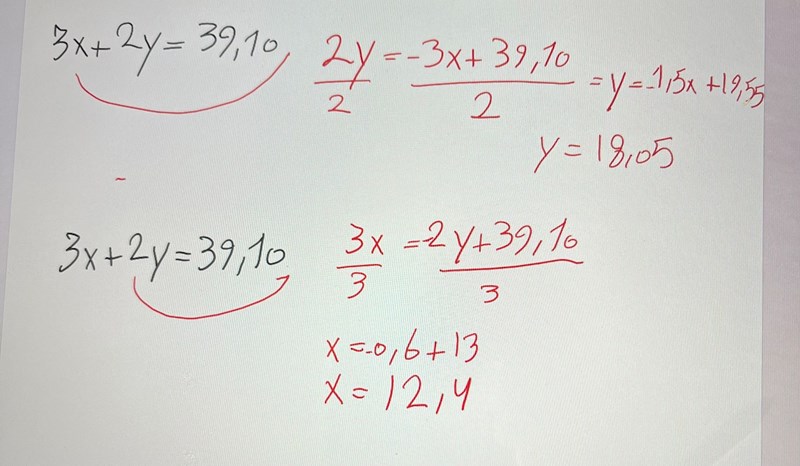 3x+2y=39,10
2y/2 = -3x+39,10/2 = y=-1,5x+19,55
y=18,05
3x+2y=39,10
3x/3 = -2y+39,10/3
x=-0,6+13
x=12,4